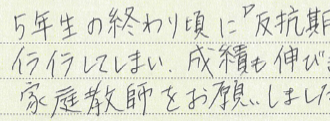 5年生の終わり頃に"反抗期
行行してしまい、成績も伸び
家庭教師をお願いしました